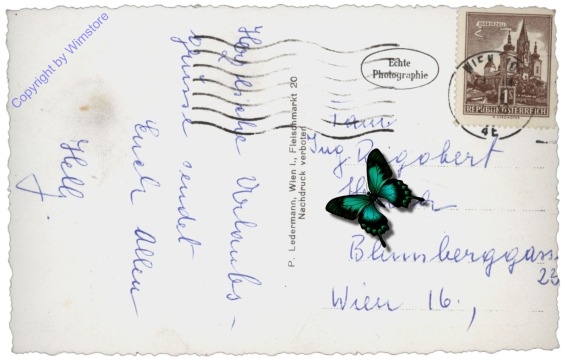 Copyright by Wimstore
Herzliche Urlaubs-
grüsse sendet
Euch Allen
Helly
P. Ledermann, Wien I., Fleischmarkt 20
Nachdruck verboten
Echte
Photographie
MARIAZELL
1S
REPUBLIK ÖSTERREICH
WIEN
Fam.
Ing. Dagobert
Blumberggasse
23
Wien 16.,